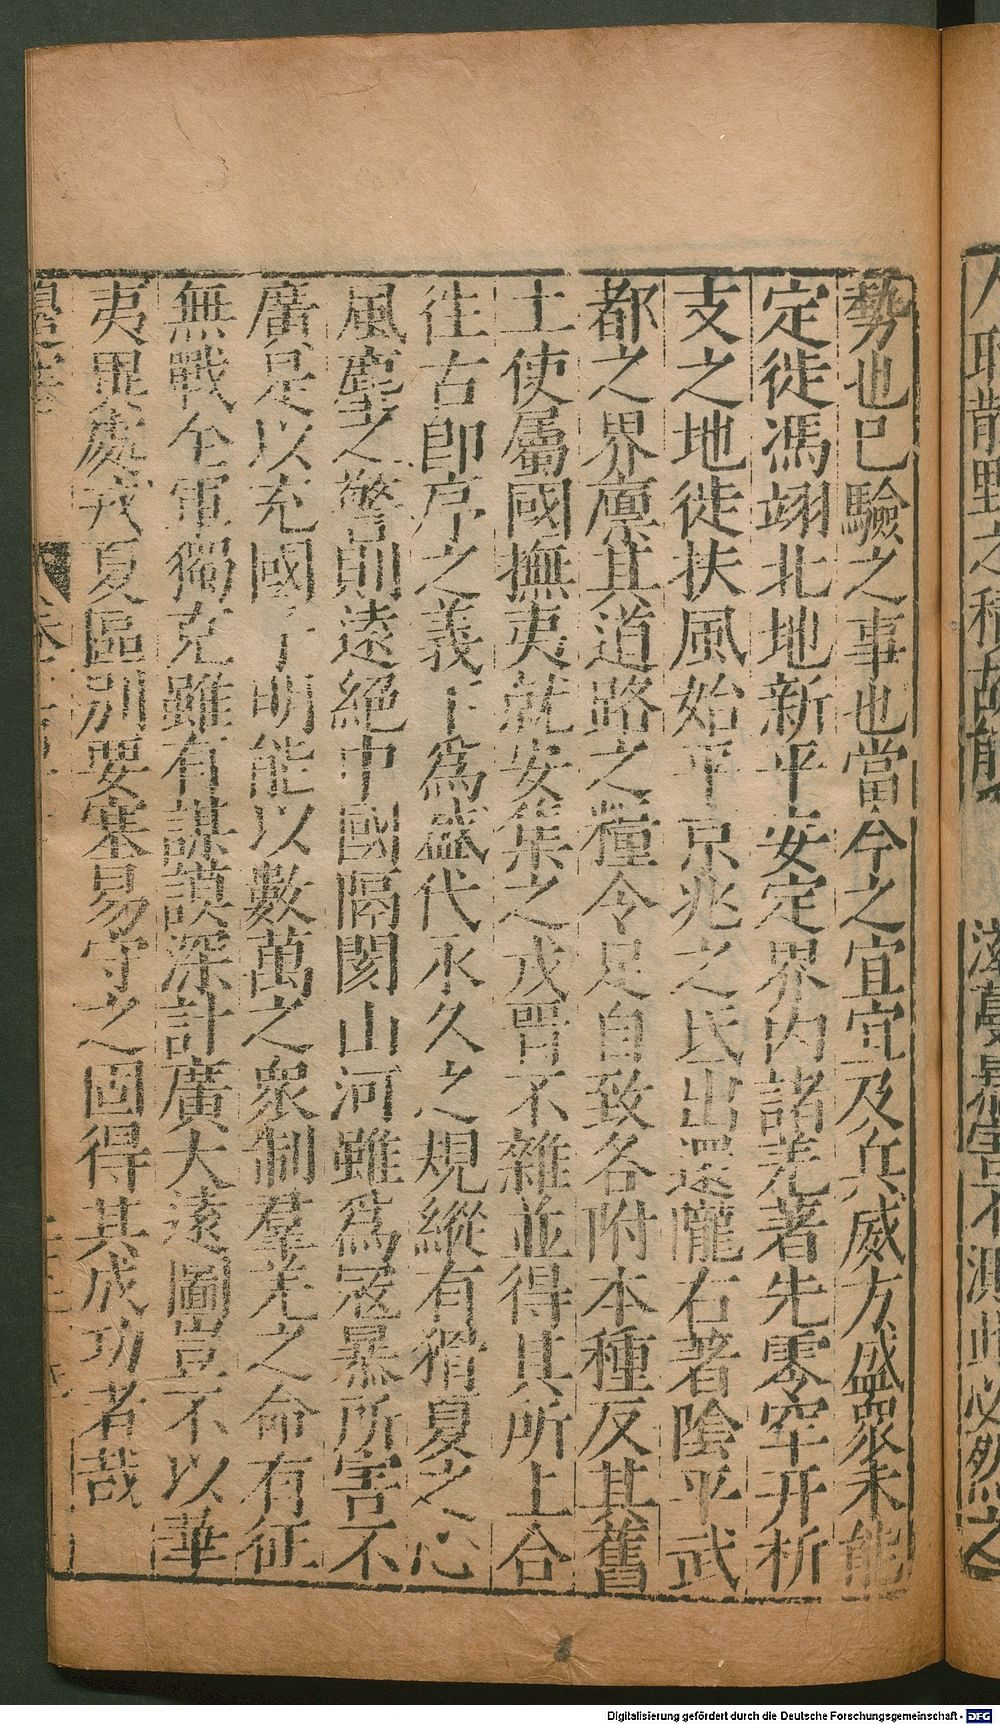 人耶散野之積故能 滋蔓暴害不測此必然之
勢也已驗之事也當今之宜宜及兵威方盛衆未能
定徙馮翊北地新平安定界内諸羌著先零罕幵析
支之地徙扶風始平京兆之氐出還隴右著陰平武
都之界廪其道路之糧令足自致各附本種反其舊
土使屬國撫夷就安集之戎晋不雜並得其所上合
徃古即序之義下爲盛代永久之規縱有猾夏之心
風塵之警則遠絕中國隔閡山河雖爲寇暴所害不
廣是以充國子明能以數萬之衆制羣羌之命有征
無戰全軍獨克雖有謀謨深計廣大遠圖豈不以華
夷異處戎夏區别要塞易守之固得其成功者哉
Digitalisierung gefördert durch die Deutsche Forschungsgemeinschaft - DFG